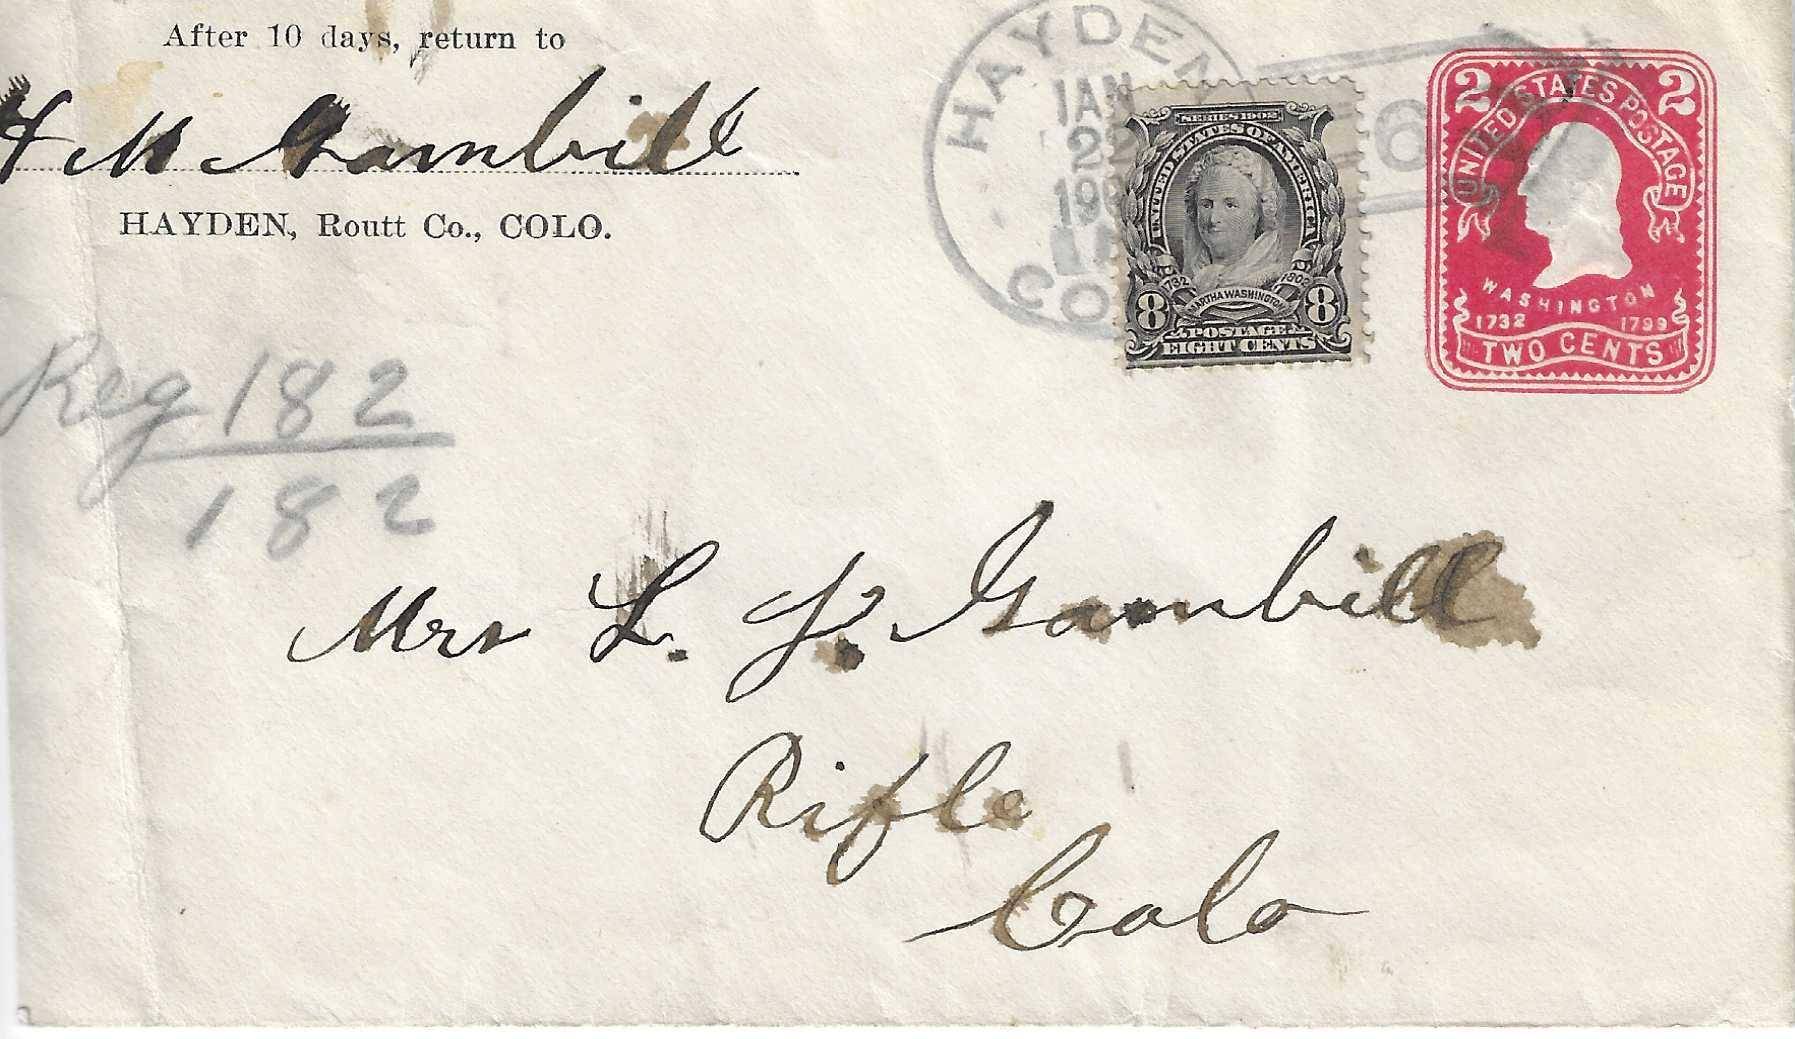 After 10 days, return to
M Gambill
HAYDEN, Routt Co., COLO.
HAYDEN
JAN
22
190
COLO
6
SERIES 1902
UNITED STATES OF AMERICA
1732 1802
MARTHA WASHINGTON
8 POSTAGE 8
EIGHT CENTS
2 2
UNITED STATES POSTAGE
WASHINGTON
1732 1799
TWO CENTS
Reg 182
182
Mrs L. P. Gambill
Rifle
Colo